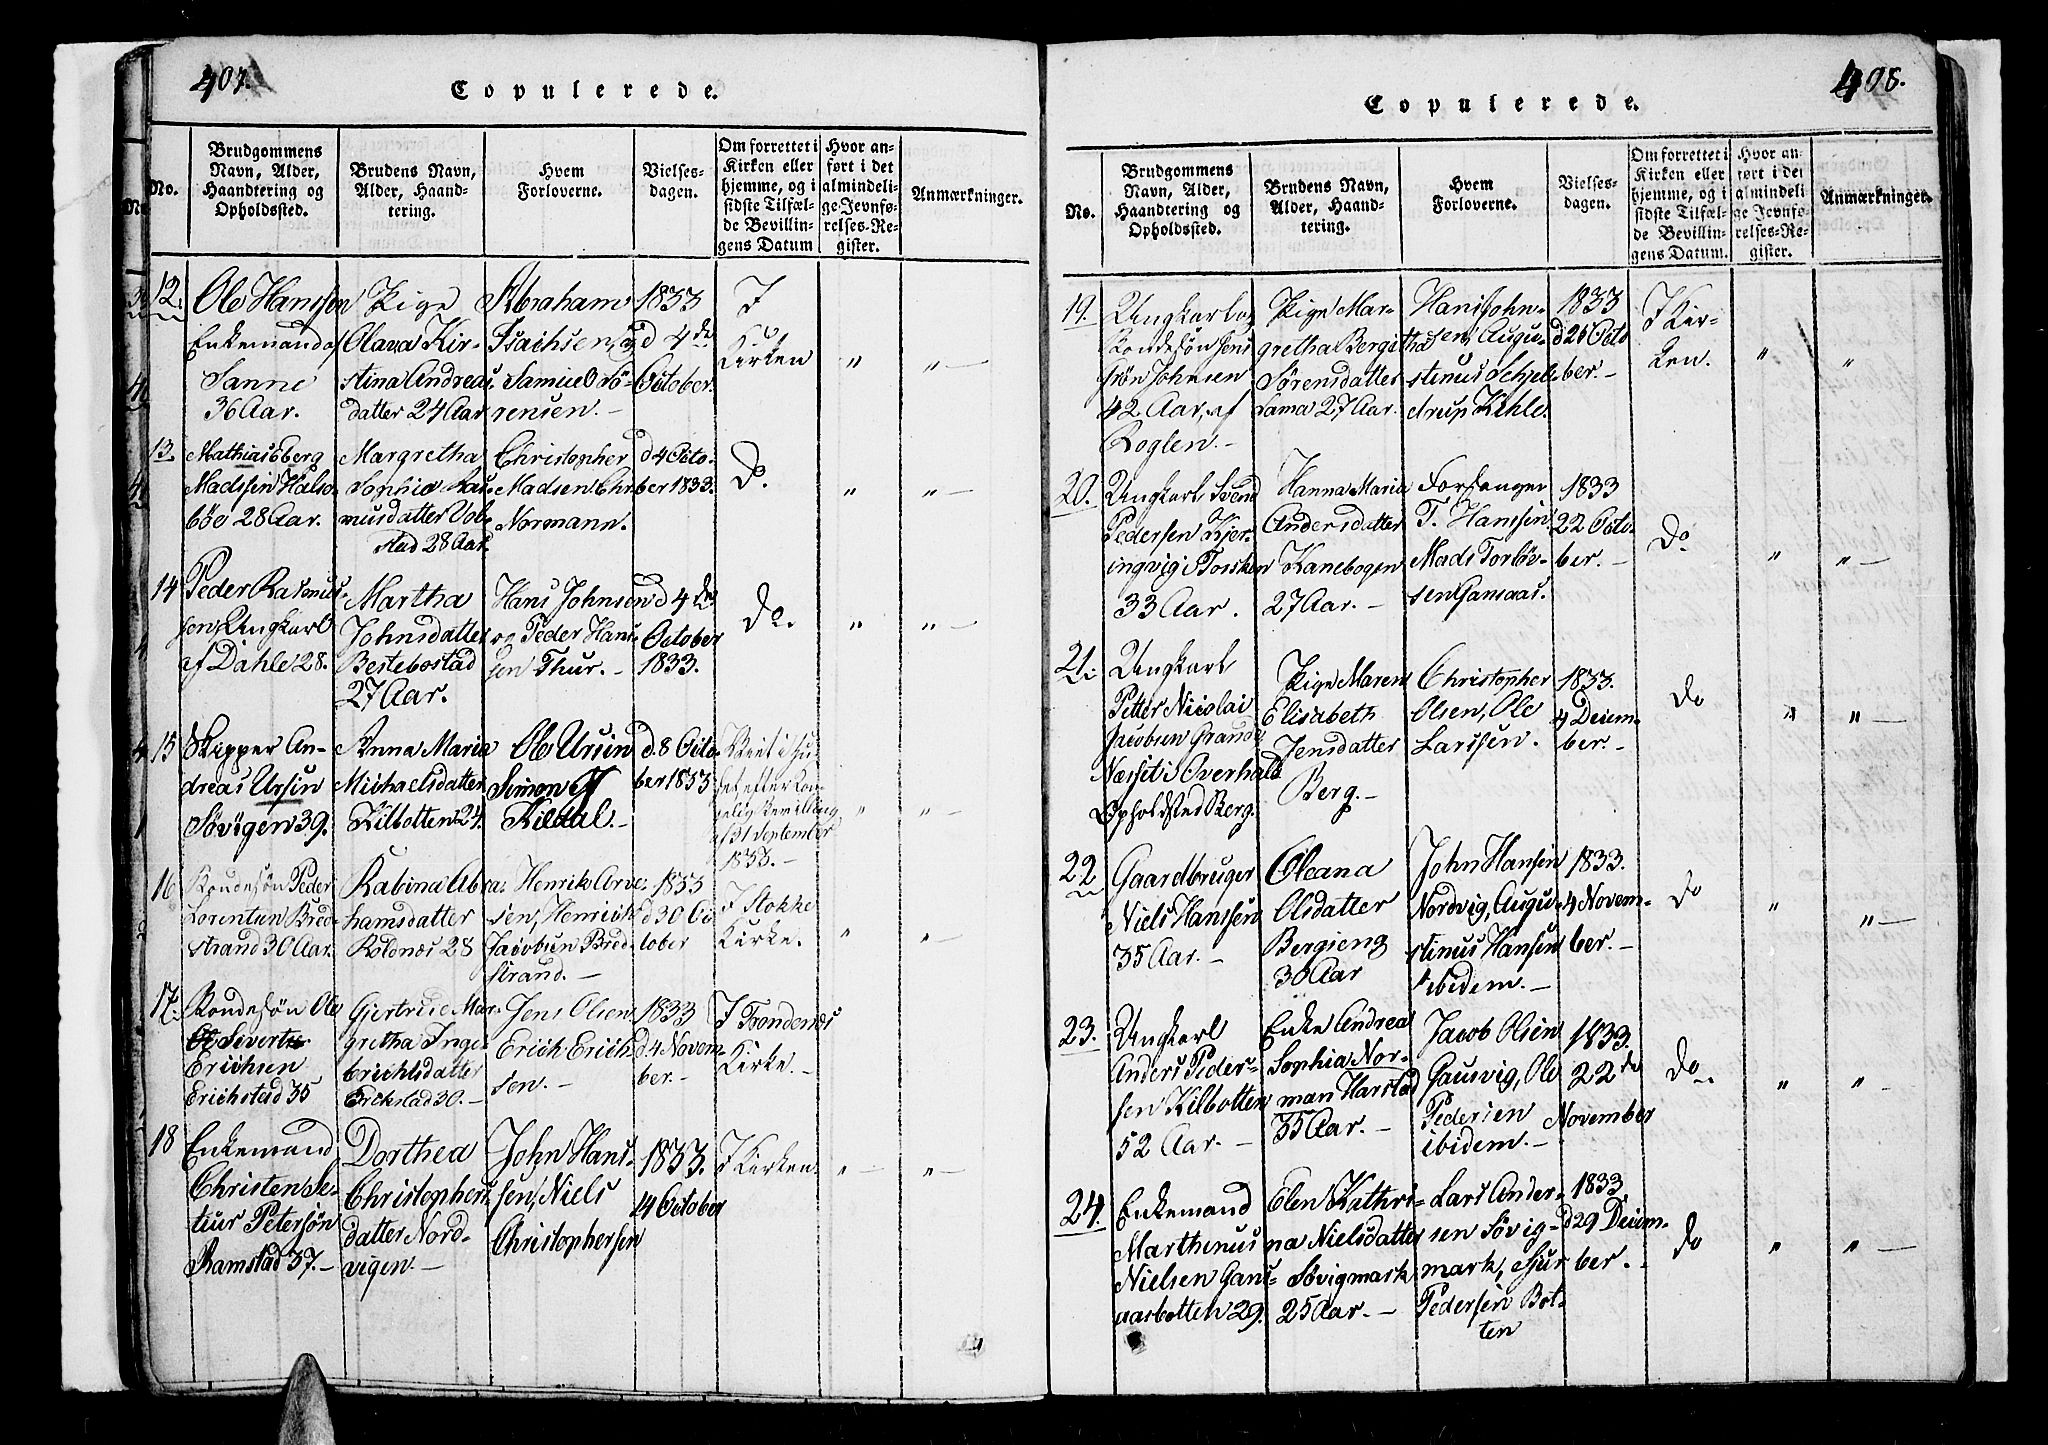 407.
Copulerede.
No.
Brudgommens
Navn, Alder,
Haandtering og
Opholdssted.
Brudens Navn,
Alder, Haand-
tering.
Hvem
Forloverne.
Vielses-
dagen.
Om forrettet i
Kirken eller
hjemme, og i
sidste Tilfæl-
de Bevillin-
gens Datum
Hvor an-
ført i det
almindeli-
ge Jevnfø-
relses-Re-
gister.
Anmærkninger.
12.
Ole Hanssen
Enkemand af
Sanne
36 Aar.
Pige
Olava Kir-
stina Andreas
datter 24 Aar
Abraham
Isachsen, og
Samuel Sö-
rensen. -
1833
d 4de
October.
I
Kirken
" " -
13.
Mathias Eberg
Madssen Halse
böe 28 Aar.
Margretha
Sophia Ras-
musdatter Vol-
stad 28 Aar.
Christopher
Madsen Chr.
Normann.
d 4 Octo-
ber 1833.
Do.
" " -
14
Peder Rasmus-
sen Ungkarl
af Dahle 28.
Martha
Johnsdatter
Bestebostad
27 Aar.
Hans Johnsen
og Peder Hans-
sen Thur. -
d 4de
October
1833.
Do.
" " -
15
Skipper An-
dreas Ursin
Sövigen 39.
Anna Maria
Michaelsdatter
Kilbotten 24.
Ole Ursin
Simon
Kildal. -
d. 8 Octo-
ber 1833
Viet i Hu-
set efter Kon-
gelig Bevilling
af 31 September
1833. -
" " -
16
Bondesön Peder
Lorentsen Bred-
strand 30 Aar.
Kabina Abra-
hamsdatter
Roldnæs 28
Henrik Arve-
sen, Henrich
Jacobsen Bred-
strand. -
1833
d 30 Oc-
tober
I Stokke
Kirke.
" " -
17.
Bondesön Ole
Sivert
Erichsen
Erichstad 35
Gjertrud Mar-
gretha Inge-
brichtsdatter
Erikstad 30. -
Jens Olsen
Erich Erich-
sen. -
1833
d. 4 Novem-
ber. -
I Trondenæs
Kirke. -
18
Enkemand
Christen Se-
tius Petersön
Ramstad 37. -
Dorthea
Christophers-
datter Nord-
vigen. -
John Hans-
sen, Niels
Christophersen
1833.
14 October
I Kirken.
" - " -
408.
Copulerede.
No.
Brudgommens
Navn, Alder,
Haandtering og
Opholdssted.
Brudens Navn,
Alder, Haand-
tering.
Hvem
Forloverne.
Vielses-
dagen.
Om forrettet i
Kirken eller
hjemme, og i
sidste Tilfæl-
de Bevillin-
gens Datum.
Hvor an-
ført i det
almindeli-
ge Jevnfø-
relses-Re-
gister.
Anmærkninger.
19.
Ungkarl og
Bondesön Jens
Grön Johnsen
42 Aar, af
Roglen. -
Pige Mar-
gretha Bergitha
Sörensdatter
Sama 27 Aar.
Hans John-
sen, Augu-
stinus Schjel-
drup Kihle.
1833
d 26 Octo
ber. -
I Kir-
ken.
" "
20.
Ungkarl Svend
Pedersen Kjer-
ingvig i Torsken
33 Aar.
Hanna Maria
Andersdatter
Kanebogen
27 Aar. -
Forsanger
T. Hanssen
Mads Torlöv-
sen Gansaas.
1833
22 Octo-
ber. -
Do
" " -
21.
Ungkarl
Petter Nicolai
Jacobsen Grande
Næsset i Overhald
Opholdsted Berg.
Pige Maren
Elisabeth
Jensdatter
Berg. -
Christopher
Olsen, Ole
Larssen.
1833.
4 Decem-
ber. -
Do
" " -
22
Gaardbruger
Niels Hanssen
35 Aar. -
Oleana
Olsdatter
Bergieng
30 Aar
John Hansen
Nordvig, Augu-
stinus Hansen
ibidem. -
1833.
4 Novem-
ber. -
Do
" " -
23.
Ungkarl
Anders Peder-
sen Kilbotten
52 Aar. -
Enke Andrea
Sophia Nor-
man Harstad
35 Aar. -
Jacob Olsen
Gausvig, Ole
Pedersen
ibidem. -
1833.
22de
November
Do.
" " -
24.
Enkemand
Marthinus
Nielsen Gans-
aasbotten 29.
Elen Kathri-
na Nielsdatter
Sövigmark
25 Aar. -
Lars Ander-
sen Sövig-
mark, Sjur
Pedersen Bot-
ten
1833
d 29 Decem-
ber. -
Do
" " -